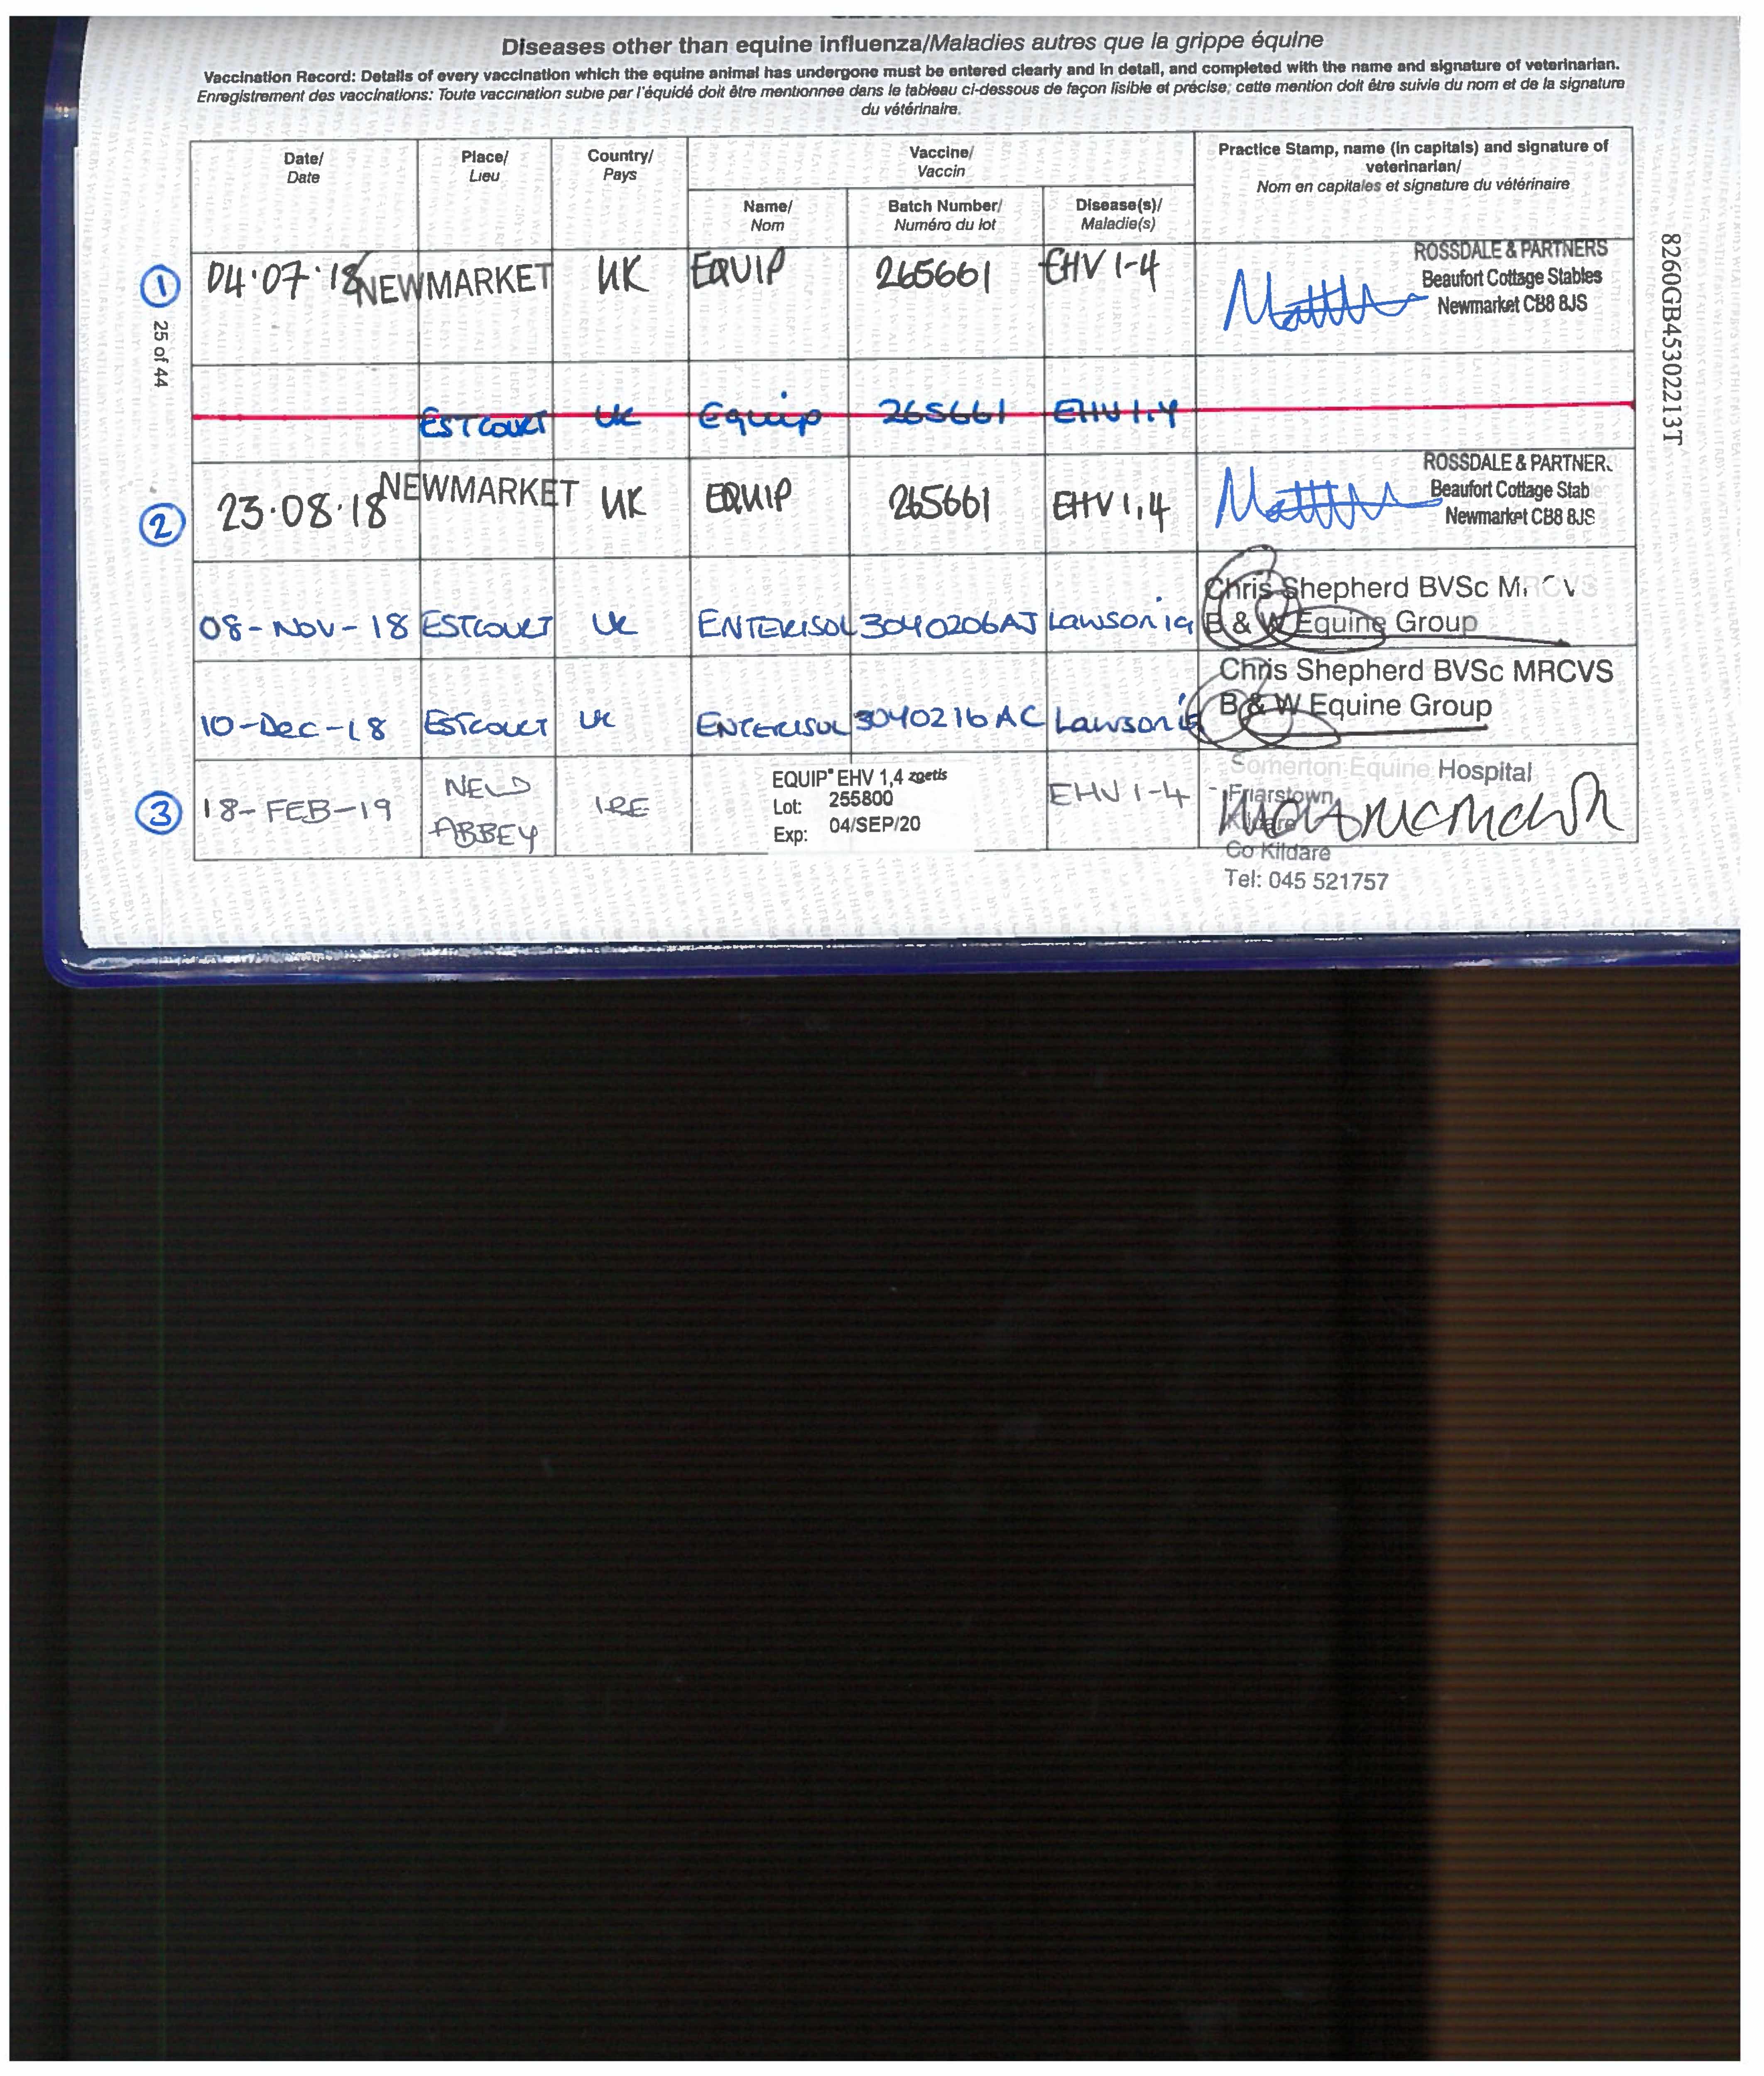 Diseases other than equine influenza/Maladies autres que la grippe équine
Vaccination Record: Details of every vaccination which the equine animal has undergone must be entered clearly and in detail, and completed with the name and signature of veterinarian.
Enregistrement des vaccinations: Toute vaccination subie par l'équidé doit être mentionnee dans le tableau ci-dessous de façon lisible et précise; cette mention doit être suivie du nom et de la signature
du vétérinaire.
Date/ Date
Place/ Lieu
Country/ Pays
Vaccine/ Vaccin
Name/ Nom
Batch Number/ Numéro du lot
Disease(s)/ Maladie(s)
Practice Stamp, name (in capitals) and signature of
veterinarian/
Nom en capitales et signature du vétérinaire
1 04·07·18 NEWMARKET UK EQUIP 265661 EHV 1-4
ROSSDALE & PARTNERS
Beaufort Cottage Stables
Newmarket CB8 8JS
25 of 44
8260GB45302213T
ESTCOURT UK Equip 265661 EHV 1.4
2 23·08·18 NEWMARKET UK EQUIP 265661 EHV 1,4
ROSSDALE & PARTNER
Beaufort Cottage Stab
Newmarket CB8 8JS
08-NOV-18 ESTCOURT UK ENTERISOL 3040206AJ Lawsonia
Chris Shepherd BVSc
B & W Equine Group
10-Dec-18 ESTCOURT UK ENTERISOL 3040216AC Lawsonia
Chris Shepherd BVSc MRCVS
B & W Equine Group
3 18-FEB-19 NEW ABBEY IRE
EQUIP® EHV 1,4 zoetis
Lot: 255800
Exp: 04/SEP/20
EHV 1-4
Somerton Equine Hospital
Friarstown
Kildare
Co Kildare
Tel: 045 521757